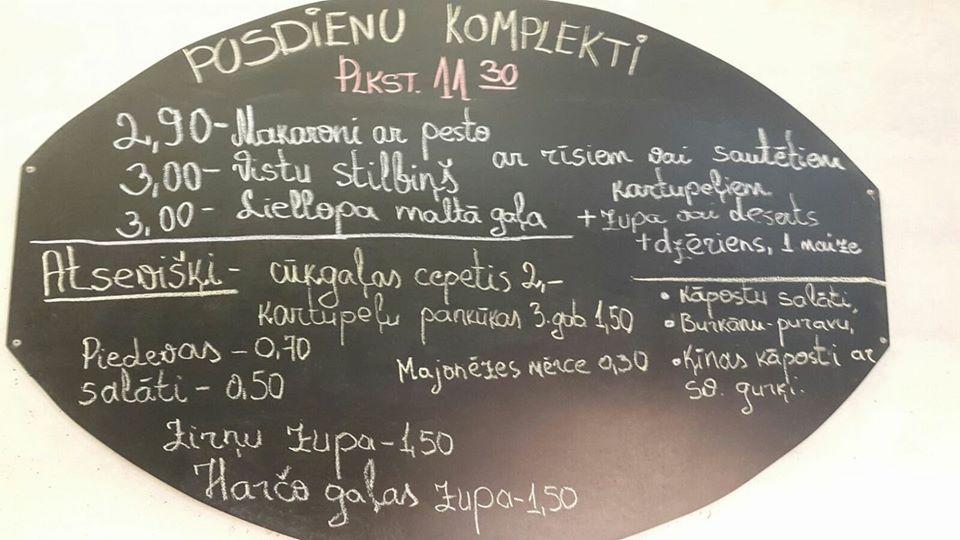 PUSDIENU KOMPLEKTI
PLKST. 11 30
2,90- Makaroni ar pesto
3,00- Vistu stilbiņš
3,00- Liellopa maltā gaļa
ar rīsiem vai sautētiem
kartupeļiem
+ zupa vai deserts
+ dzēriens, 1 maize
Atsevišķi- cūkgaļas cepetis 2,-
kartupeļu pankūkas 3.gab 1,50
Piedevas - 0,70
Majonēzes mērce 0,30
Salāti - 0,50
• Kāpostu salāti,
• Burkānu-puravu,
• Ķīnas kāposti ar
sv. gurķi.
Zirņu zupa-1,50
Harčo gaļas zupa-1,50